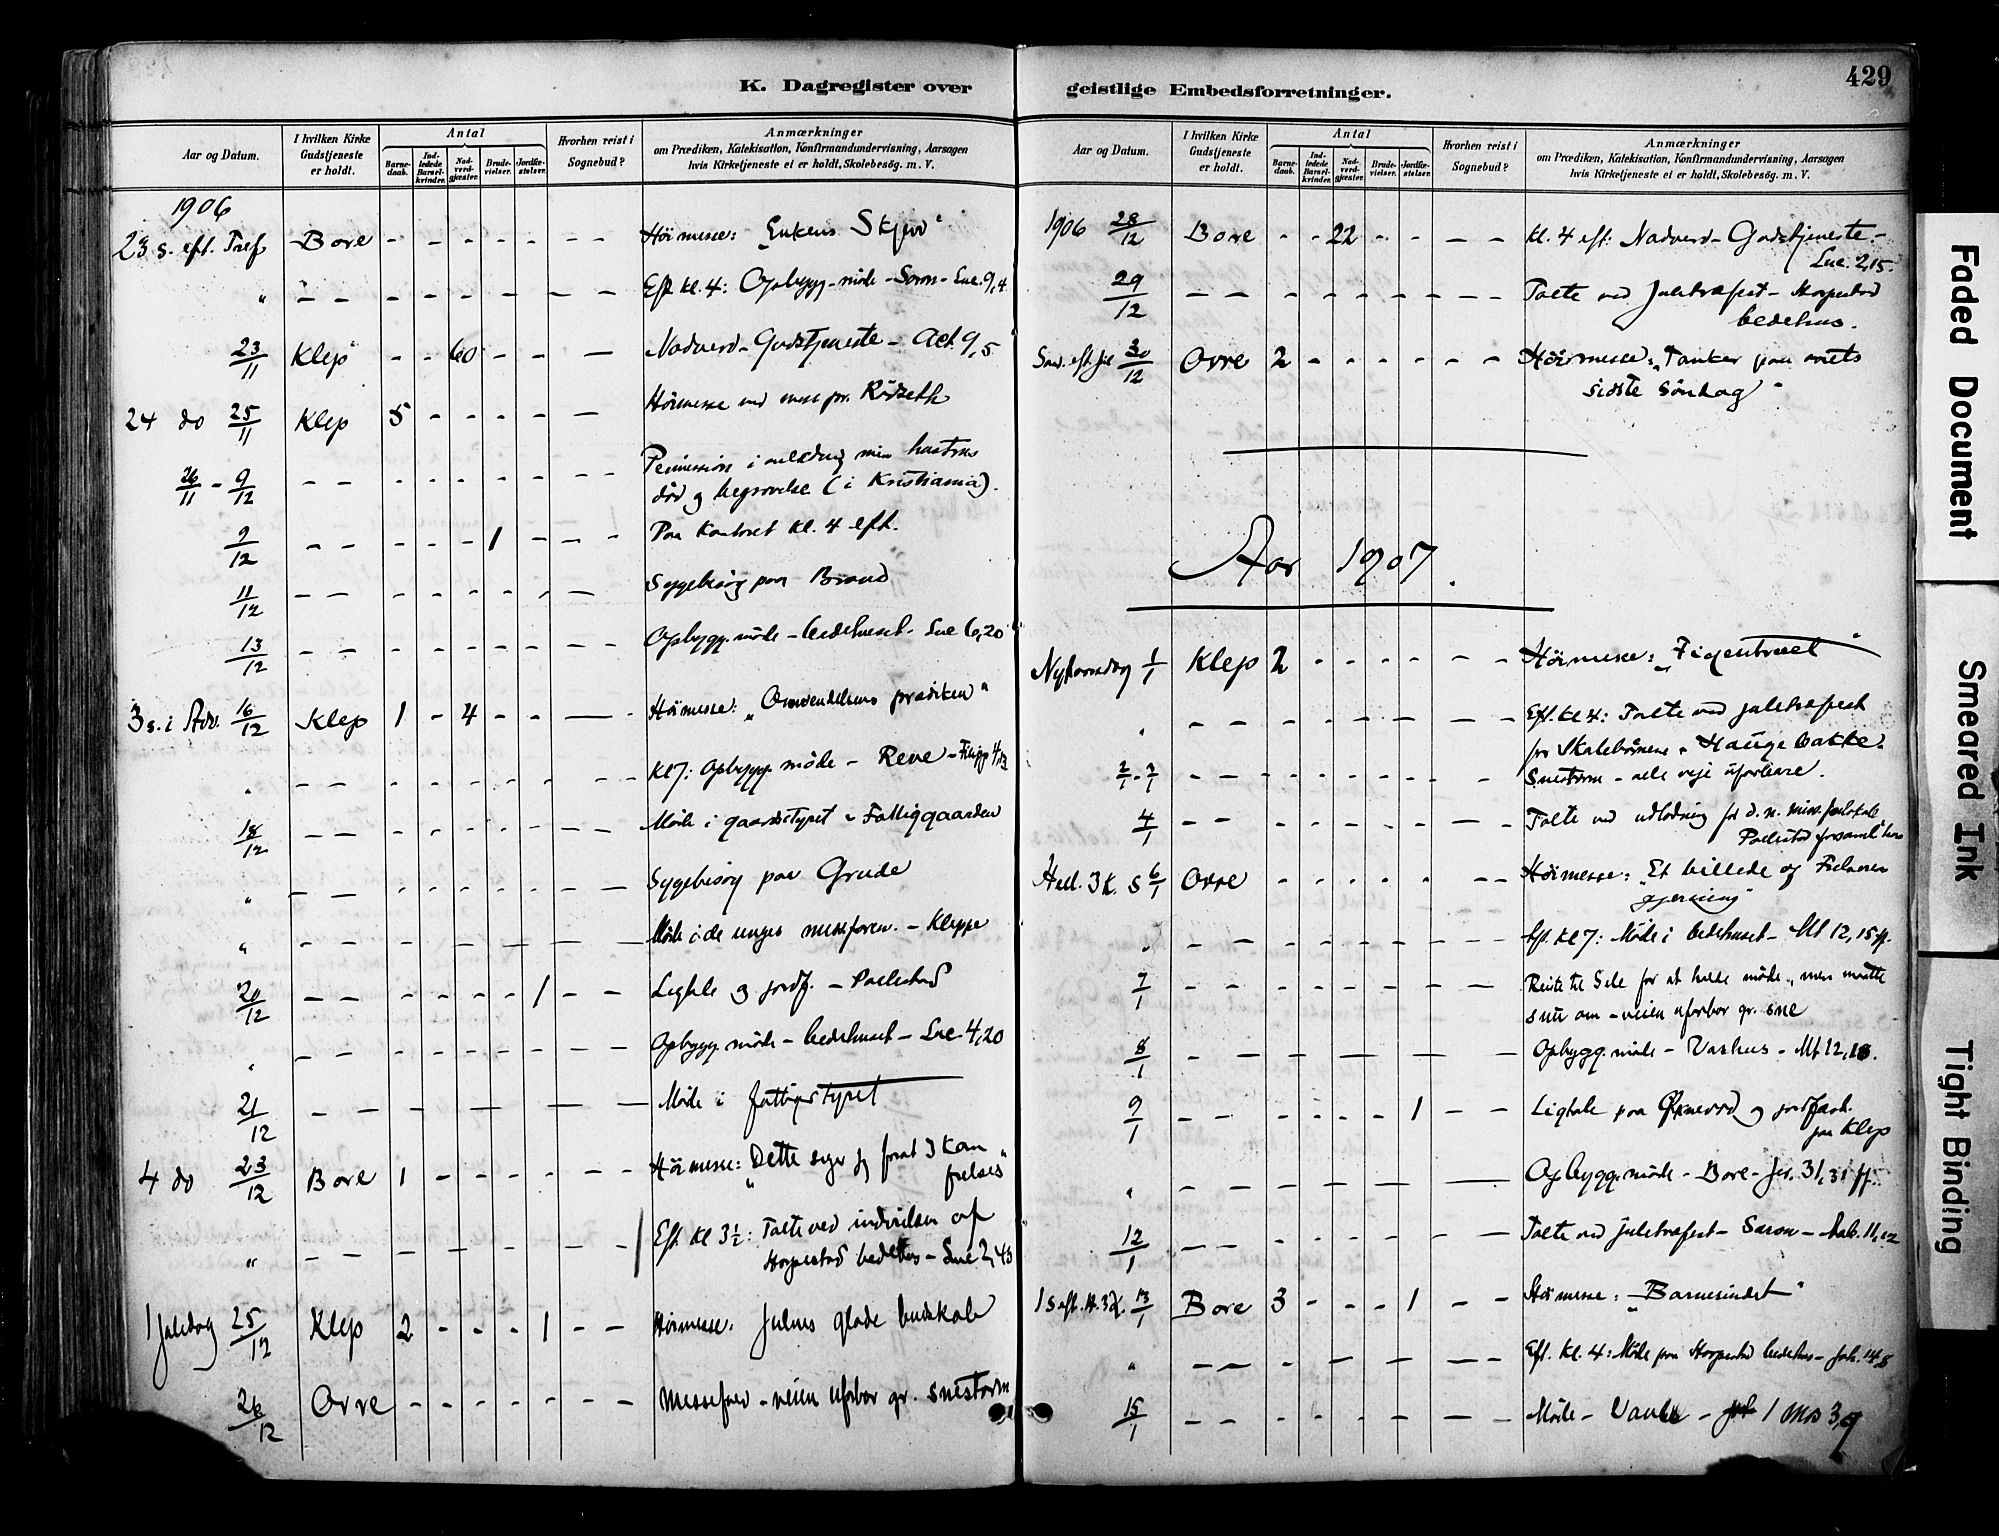 429
K. Dagregister over
Aar og Datum.
I hvilken Kirke Gudstjeneste er holdt.
Antal
Barnedaab.
Indledede Barselkvinder.
Nadverdgjester.
Brudevielser.
Jordfæstelser.
Hvorhen reist i Sognebud?
Anmærkninger
om Prædiken, Katekisation, Konfirmandundervisning, Aarsagen
hvis Kirketjeneste ei er holdt, Skolebesøg. m. V.
1906
23 s. eft. Tref. Bore - - - - - - - Høimesse: "Enkens Skjerv"
" - - - - - - - - Eft. kl. 4: Opbygg. møde - Soron - Luc. 9,4
23/11 Klep - - 60 - - - Nadverd-Gudstjeneste - Act. 9,5
24 do 25/11 Klep 5 - - - - - Høimesse ved
26/11 - 9/12 - - - - - - - - Permission i anledning min hustrus
død og begravelse (i Kristiania).
9/12 - - - - - 1 - - - Paa Kontoret kl. 4 eft.
11/12 - - - - - - - - Sygebesøg paa Braud
13/12 - - - - - - - - Opbygg. møde - bedehuset - Luc 6,20
3 s. i Adv. 16/12 Klep 1 - 4 - - - Høimesse: "Omvendelsens prædiken"
" - - - - - - - - Kl 7: Opbygg. møde - Reve - Filipp 4,13
18/12 - - - - - - - - Møde i gaardstyret - Fattiggaarden
" - - - - - - - - Sygebesøg paa Grude
" - - - - - - - - Møde i de unges missforen. - Kleppe
20/12 - - - - - - 1 - - Ligtale og jordf. - Pollestad
" - - - - - - - - Opbygg. møde - bedehuset - Luc 4,20
21/12 - - - - - - Møde i fattigstyret
4 do 23/12 Bore 1 - - - - - - Høimesse: "Dette siger jeg forat I kan
frelses"
" - - - - - - - - Eft. Kl 3½: Talte ved indvielsen af
Horpestad bedehus - Luc 2,43
1 juledag 25/12 Klep 2 - - - 1 - - Høimesse: Julens glade budskab
26/12 Orre - - - - - - - Messefald - veien ufarbar gr. snestorm
geistlige Embedsforretninger.
Aar og Datum.
I hvilken Kirke Gudstjeneste er holdt.
Antal
Barnedaab.
Indledede Barselkvinder.
Nadverdgjester.
Brudevielser.
Jordfæstelser.
Hvorhen reist i Sognebud?
Anmærkninger
om Prædiken, Katekisation, Konfirmandundervisning, Aarsagen
hvis Kirketjeneste ei er holdt, Skolebesøg. m. V.
1906 28/12 Bore - - 22 - - - - Kl. 4 eft: Nadverd-Gudstjeneste -
Luc. 2,15.
29/12 - - - - - - - - Talte ved juletræfest - Horpestad
bedehus.
Sønd. eft. jul 30/12 Orre 2 - - - - - - Høimesse: "Tanker paa aarets
sidste søndag"
Aar 1907.
Nytaarsdag 1/1 Klep 2 - - - - - - Høimesse: "Figentræet"
" - - - - - - - - Eft. kl 4: Talte ved juletræfest
for Skolebørnene - Haugebakke.
2/1 - 3/1 - - - - - - - - Snestorm - alle veje ufarbare.
4/1 - - - - - - - - Talte ved udlodning for d. n. miss.
Pollestad forsaml.hus
Hell. 3 K. s 6/1 Orre - - - - - - - Høimesse: "Et billede og Frelseren
gjerning"
" - - - - - - - - Eft. Kl 7: Møde i bedehuset - Mt 12,15 ff.
7/1 - - - - - - - - Reiste til Sele for at holde møde, men maatte
snu om - veien ufarbar gr. sne
8/1 - - - - - - Opbygg. møde - Varhus - Mt 12,18.
9/1 - - - - - - 1 - - Ligtale paa Øxnevad og jordfæst.
paa Klep
" - - - - - - - Opbygg. møde - Bore - Jer. 31,31 ff.
12/1 - - - - - - - - Talte ved juletræfest - Saron - Aab. 11,12
1 S eft. H. 3 K. 13/1 Bore 3 - - - 1 - - Høimesse: "Barnesindet"
" - - - - - - - Eft. Kl. 4: Møde paa Horpestad bedehus - Joh. 14,8
15/1 - - - - - - - - Møde - - 1 Mos 3,9
Faded Document
Smeared Ink
Tight Binding